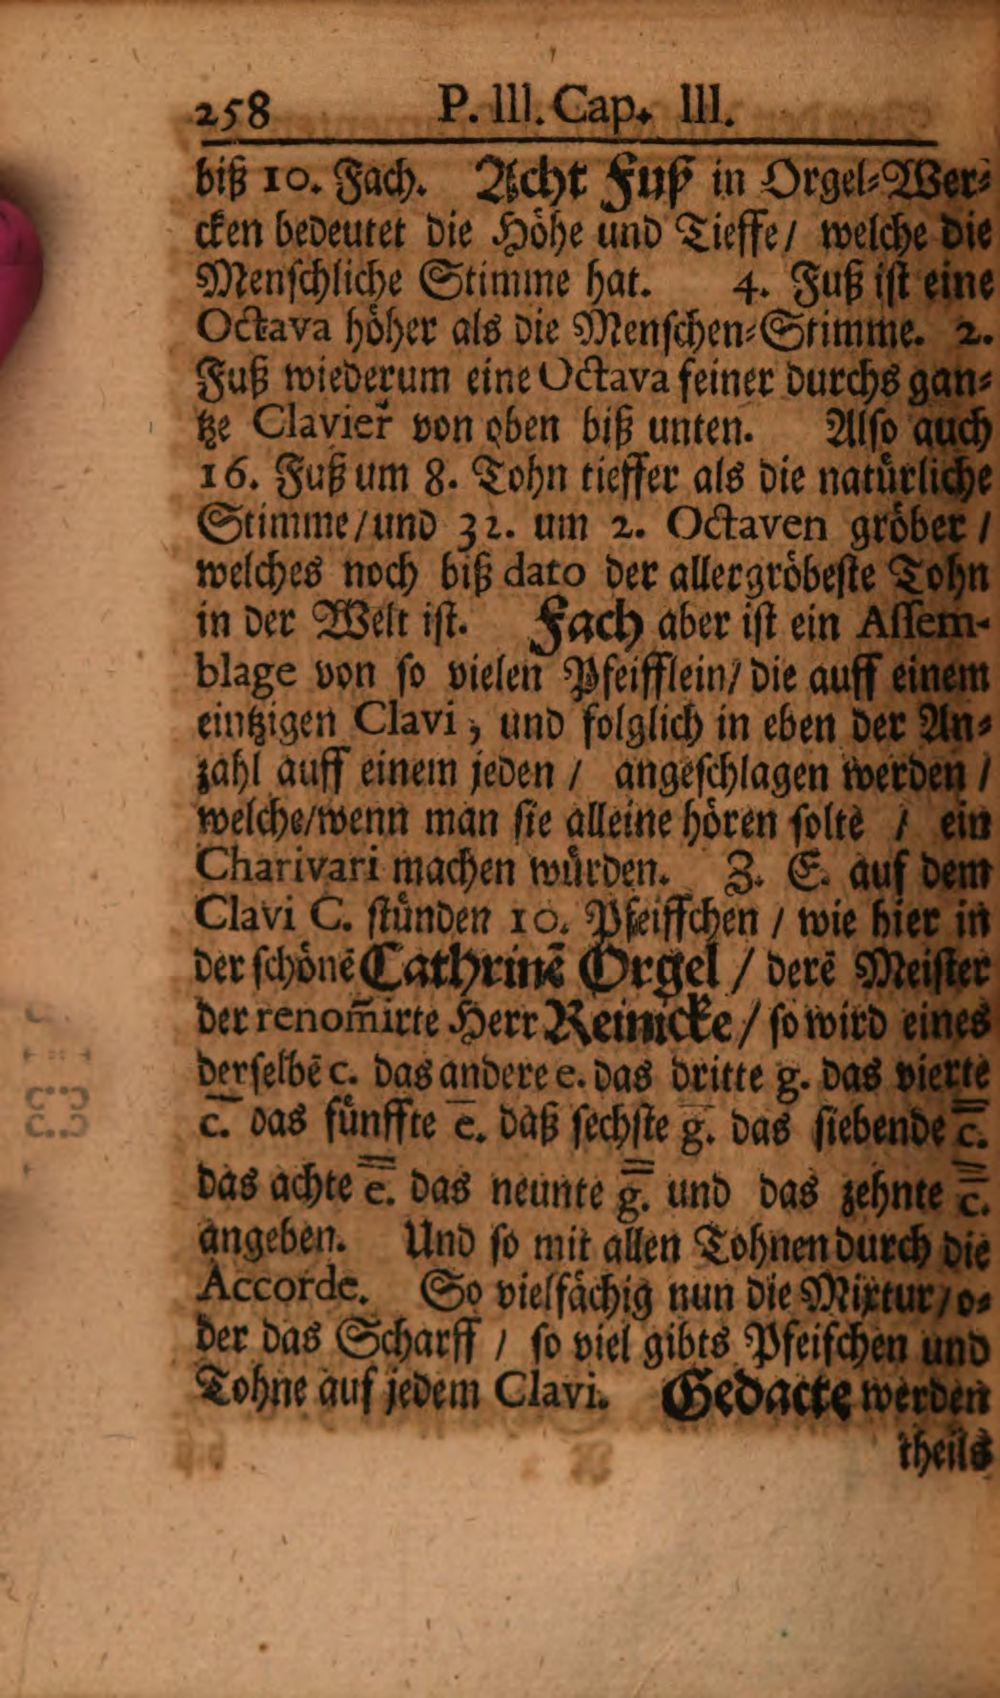 258 P. III. Cap. III.
biß 10. Fach. Acht Fuß in Orgel-Wer-
cken bedeutet die Höhe und Tieffe / welche die
Menschliche Stimme hat. 4. Fuß ist eine
Octava höher als die Menschen-Stimme. 2.
Fuß wiederum eine Octava feiner durchs gan-
tze Clavier von oben biß unten. Also auch
16. Fuß um 8. Tohn tieffer als die natürliche
Stimme / und 32. um 2. Octaven gröber /
welches noch biß dato der allergröbeste Tohn
in der Welt ist. Fach aber ist ein Assem-
blage von so vielen Pfeifflein / die auff einem
eintzigen Clavi, und folglich in eben der An-
zahl auff einem jeden / angeschlagen werden /
welche / wenn man sie alleine hören solte / ein
Charivari machen würden. Z. E. auf dem
Clavi C. stünden 10. Pfeiffchen / wie hier in
der schönē Cathrinē Orgel / derē Meister
der renom̃irte Herr Reincke / so wird eines
derselbē c. das andere e. das dritte g. das vierte
c̅. das fünffte e̅. daß sechste g̅. das siebende c̿.
das achte e̿. das neunte g̿. und das zehnte c̿.
angeben. Und so mit allen Tohnen durch die
Accorde. So vielfächig nun die Mixtur / o-
der das Scharff / so viel gibts Pfeifchen und
Tohne auf jedem Clavi. Gedacte werden
theils